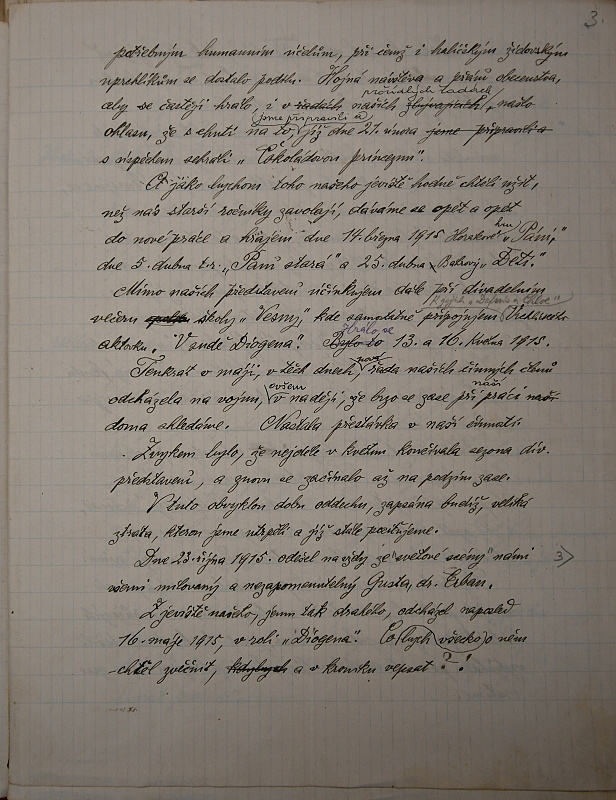 3.
potřebným humanním účelům, při čemž i haličským židovským
uprchlíkům se dostalo podílu. Hojná návštěva a přání obecenstva,
přísedlých Tadrek
aby se častěji hrálo, i v řadách našich zbývajících, našlo
jsme připravili a
ohlasu, že s chutí na to, již dne 27. února jsme připravili a
s úspěchem sehráli „Čokoládovou princeznu".
A jako bychom toho našeho jeviště hodně chtěli užít,
než nás starší ročníky zavolají, dáváme se opět a opět
hru
do nové práce a hrajeme dne 14. března 1915 Horákové „Paní",
dne 5. dubna t.r. „Paní stará" a 25. dubna Bahrovy „Děti."
Mimo našich představení účinkujem dále při divadelním
„Dafnis a Chloe"
večeru spolku školy „Vesny", kde samostatně připojujem
Hrálo se
aktovku, „V sudě Diogena". Bylo to 13. a 16. května 1915.
Tenkrát v máji, v těch dnech, řada našich činných členů
ovšem naší
odcházela na vojnu, v naději, že brzo se zase při práci naší
doma shledáme. Nastala přestávka v naší činnosti.
Zvykem bylo, že nejdéle v květnu končívala sezona div.
představení, a znovu se začínalo až na podzim zase.
V tuto obvyklou dobu oddechu, zapsána budiž, veliká
ztráta, kterou jsme utrpěli a již stále pociťujeme.
Dne 23. října 1915. odešel navždy ze „světové scény" námi
3
všemi milovaný a nezapomenutelný Gusta, dr. Erban.
Z jeviště našeho, jemu tak drahého, odcházel naposled
16. máje 1915, v roli „Diogena". Co bych všecko o něm
chtěl zvěčnit, kdybych a v kroniku vepsat ? - !